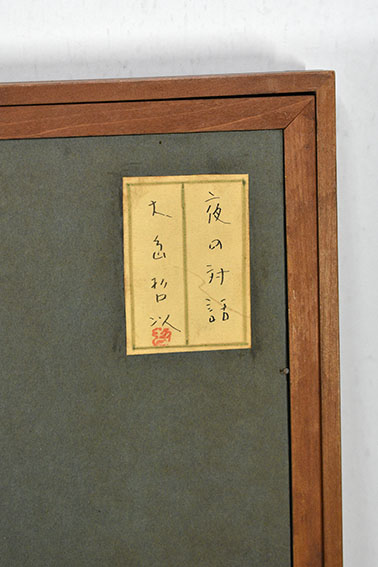 夜の対話
大島哲以